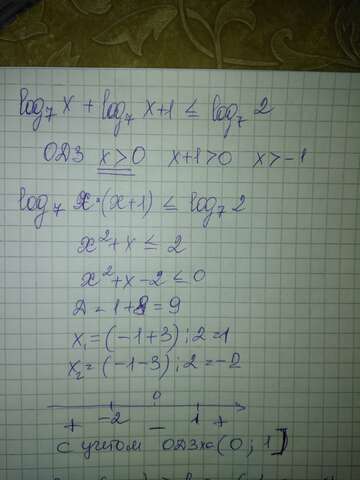 log₇ x + log₇ x+1 ≤ log₇ 2
ОДЗ x>0 x+1>0 x>-1
log₇ x·(x+1) ≤ log₇ 2
x²+x ≤ 2
x²+x-2 ≤ 0
Д = 1+8=9
x₁=(-1+3):2=1
x₂=(-1-3):2=-2
0
+ -2 — 1 +
с учетом ОДЗ x∈(0; 1]